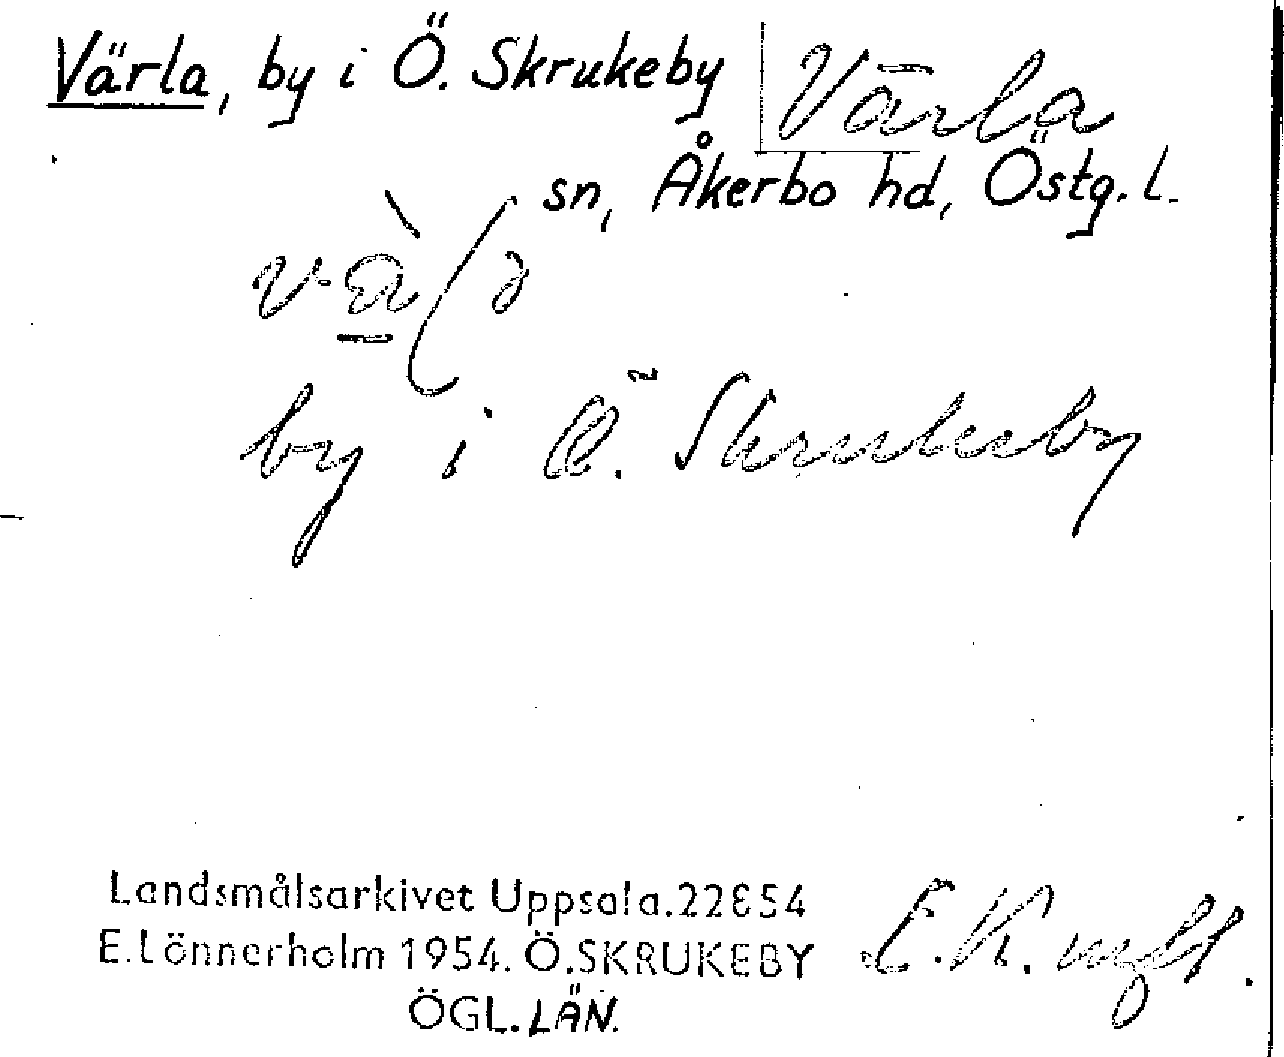 Värla, by i Ö. Skrukeby
Värla
sn, Åkerbo hd, Östg. l.
by i Ö. Skrukeby
Landsmålsarkivet Uppsala.22854
E.Lönnerholm 1954. Ö.SKRUKEBY
ÖGL.LÄN.
E.K.